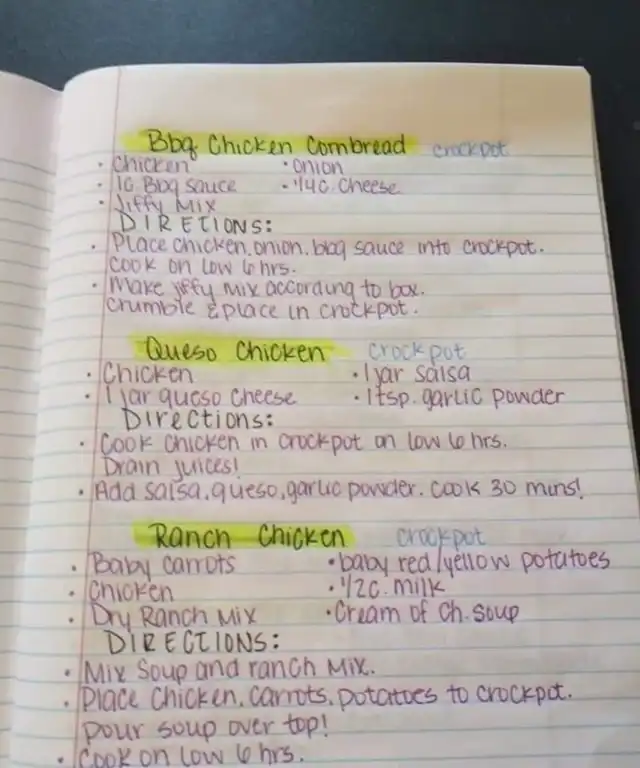 Bbq Chicken Cornbread crockpot
• Chicken • onion
• 1c Bbq sauce • 1/4c. Cheese
• Jiffy Mix
DIRETIONS:
• Place chicken, onion, bbq sauce into crockpot.
Cook on low 6 hrs.
• Make jiffy mix according to box.
Crumble & place in crockpot.
Queso Chicken crockpot
• Chicken • 1 jar salsa
• 1 jar queso cheese • 1 tsp. garlic powder
Directions:
• Cook chicken in crockpot on low 6 hrs.
Drain juices!
• Add salsa, queso, garlic powder. Cook 30 mins!
Ranch Chicken crockpot
• Baby carrots • baby red/yellow potatoes
• Chicken • 1/2c. milk
• Dry Ranch Mix • Cream of Ch. soup
DIRECTIONS:
• Mix Soup and ranch Mix.
• Place chicken, carrots, potatoes to crockpot.
pour soup over top!
• Cook on low 6 hrs.